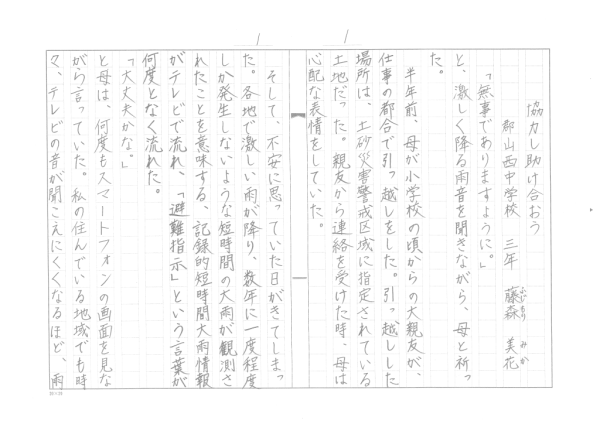 協力し助け合おう
郡山西中学校 三年 藤森 美花
ふじもり みか
「無事でありますように。」
と、激しく降る雨音を聞きながら、母と祈っ
た。
半年前、母が小学校の頃からの大親友が、
仕事の都合で引っ越しをした。引っ越しした
場所は、土砂災害警戒区域に指定されている
土地だった。親友から連絡を受けた時、母は
心配な表情をしていた。
そして、不安に思っていた日がきてしまっ
た。各地で激しい雨が降り、数年に一度程度
しか発生しないような短時間の大雨が観測さ
れたことを意味する、記録的短時間大雨情報
がテレビで流れ、「避難指示」という言葉が
何度となく流れた。
「大丈夫かな。」
と母は、何度もスマートフォンの画面を見な
がら言っていた。私の住んでいる地域でも時
々、テレビの音が聞こえにくくなるほど、雨